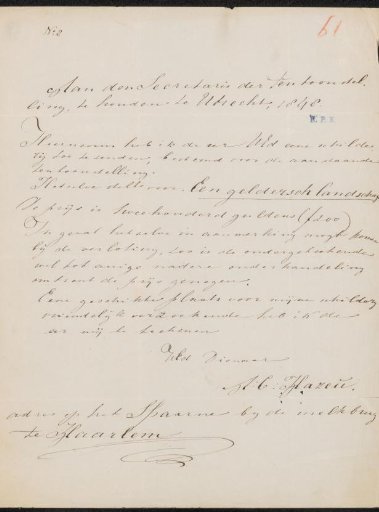 No
61
Aan den Secretaris der Tentoonstel-
ling, te houden te Utrecht, 1848.
Hiernevens heb ik de eer UEd eene schilde-
rij toe te zenden, bestemd voor de aanstaande
tentoonstelling.
Een geldersch landschap
De prijs is tweehonderd guldens (ƒ200)
In geval hetzelve in aanmerking mogt komen
bij de verloting, zoo is de ondergeteekende
wel tot eenige nadere onderhandeling
omtrent de prijs genegen.
Eene geschikte plaats voor mijne schilderij
vriendelijk verzoekende heb ik de
eer mij te teekenen
UEd Dienaar
adres op het Spaarne bij de melkbrug
te Haarlem